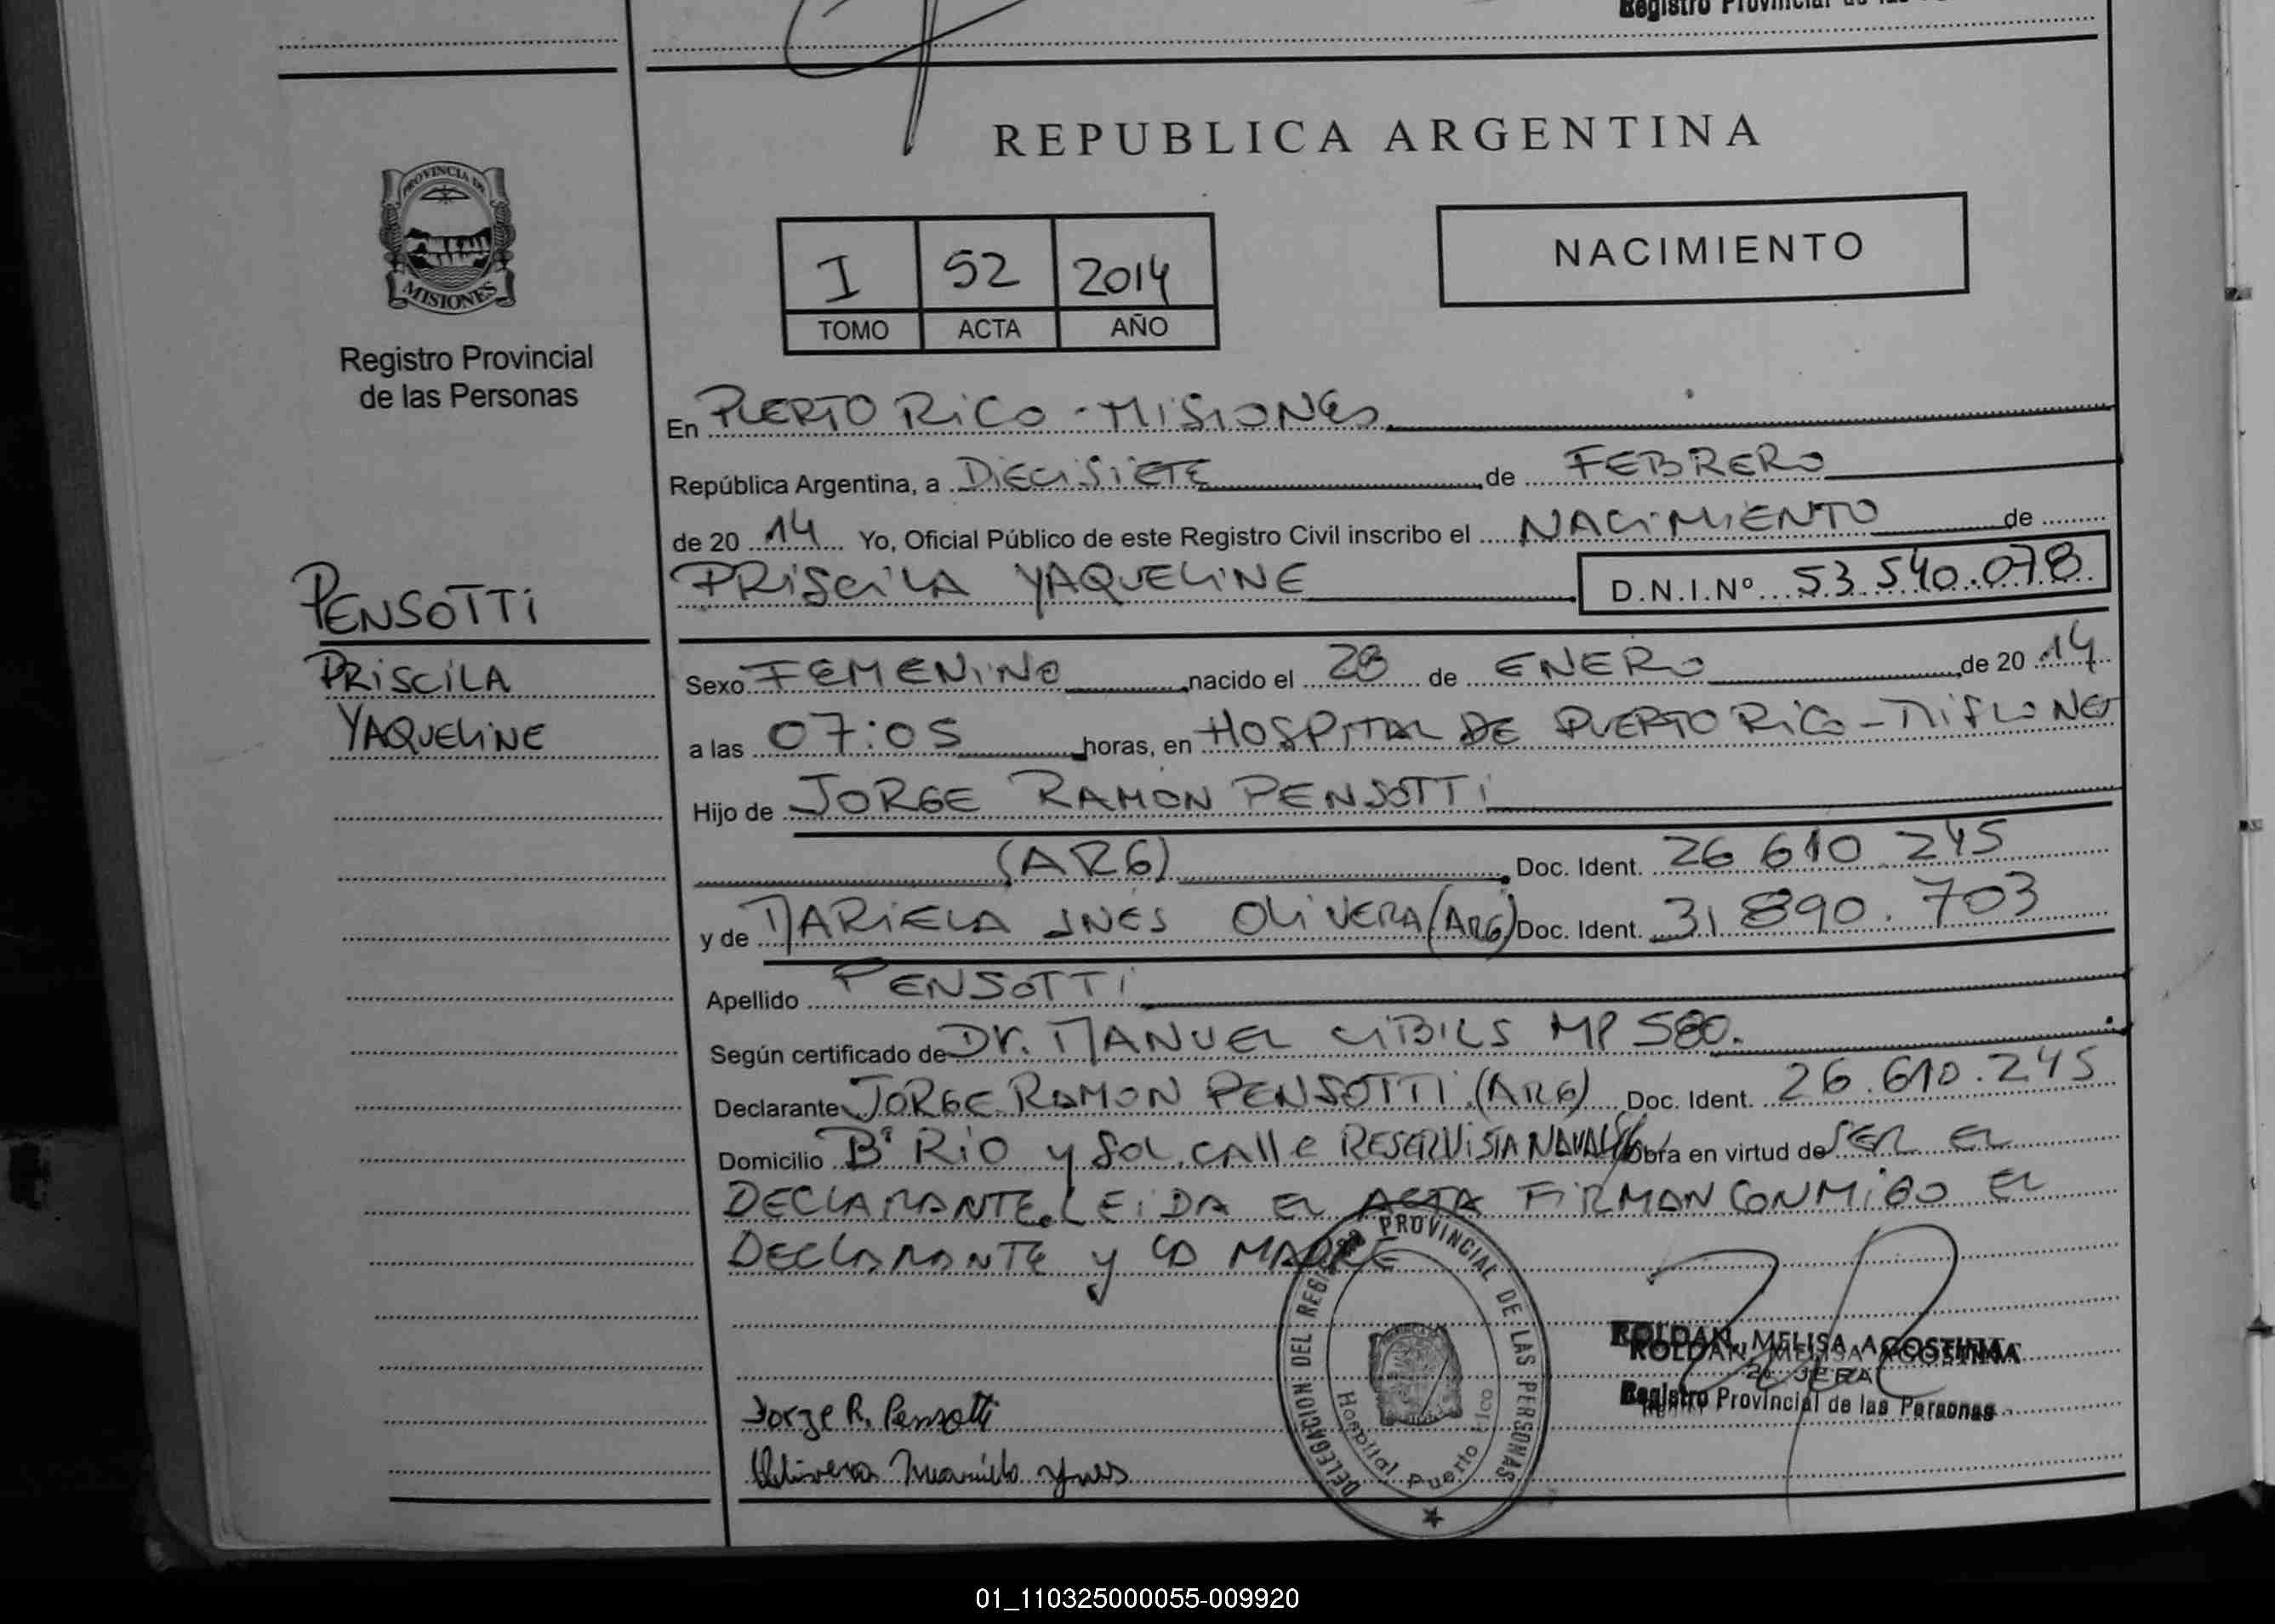 Registro Provincial de las
REPUBLICA ARGENTINA
PROVINCIA DE
MISIONES
Registro Provincial
de las Personas
I 52 2014
TOMO ACTA AÑO
NACIMIENTO
En PUERTO RICO - MISIONES
República Argentina, a DIECISIETE de FEBRERO
de 20 14 Yo, Oficial Público de este Registro Civil inscribo el NACIMIENTO de
PRISCILA YAQUELINE D.N.I.Nº 53.540.078
PENSOTTI
PRISCILA
YAQUELINE
Sexo FEMENINO nacido el 28 de ENERO de 20 14
a las 07:05 horas, en HOSPITAL DE PUERTO RICO - MISIONES
Hijo de JORGE RAMON PENSOTTI
(ARG) Doc. Ident. 26 610 245
y de MARIELA INES OLIVERA (ARG) Doc. Ident. 31 890.703
Apellido PENSOTTI
Según certificado de Dr. MANUEL CIBILS MP 580.
Declarante JORGE RAMON PENSOTTI (ARG) Doc. Ident. 26.610.245
Domicilio Bº RIO y SOL, CALLE RESERVISTA NAVAL Obra en virtud de SER EL
DECLARANTE. LEIDA EL ACTA FIRMAN CONMIGO EL
DECLARANTE y LA MADRE
DELEGACION DEL REGISTRO PROVINCIAL DE LAS PERSONAS
Hospital Puerto Rico
ROLDAN, MELISA AGOSTINA
Registro Provincial de las Personas
Jorge R. Pensotti
Olivera Mariela Ynes
01_110325000055-009920